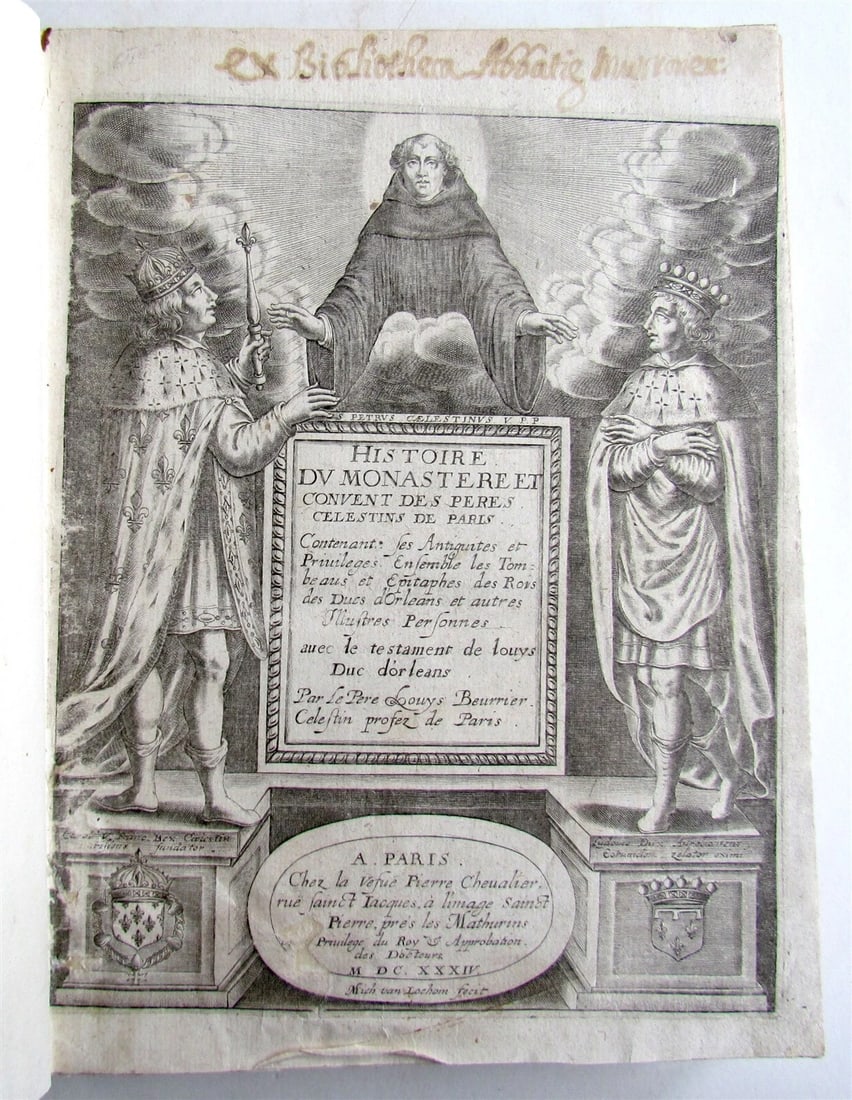 ex Bibliotheca Abbatię
S PETRVS CÆLESTINVS V P P
HISTOIRE
DV MONASTERE ET
CONVENT DES PERES
CELESTINS DE PARIS.
Contenant ses Antiquites et
Privileges Ensemble les Tom=
beaus et Epitaphes des Rois
des Ducs d'Orleans et autres
Illustres Personnes
auec le testament de louys
Duc d'orleans
Par Le Pere Louys Beurrier.
Celestin profez de Paris.
fundator
Ludouic Dux Aurelianensis
zelator eximi
A. PARIS.
Chez la Vefue Pierre Chevalier.
rue sainct Iacques, à l'image Sainct
Pierre, prés les Mathurins
Privilege du Roy & Approbation
des Docteurs
M DC. XXXIV.
Mich van Lochom fecit